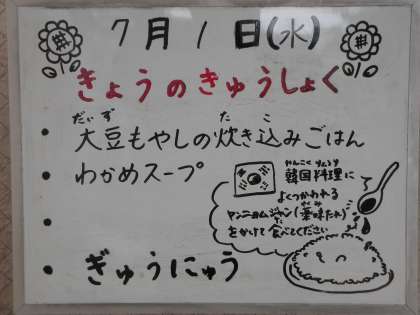 7月1日(水)
きょうのきゅうしょく
だいず た こ
・大豆もやしの炊き込みごはん
・わかめスープ
・
・ぎゅうにゅう
かんこくりょうり
韓国料理に
よくつかわれる
ヤンニョムジャン(薬味だれ)
をかけて食べてください